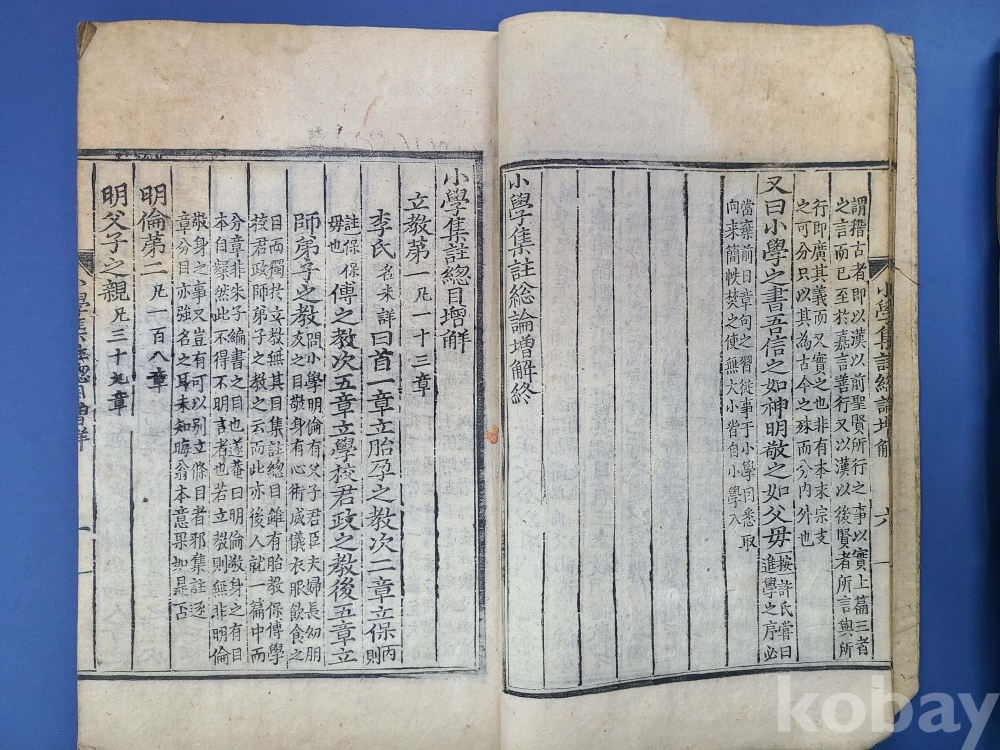 謂稽古者即以漢以前聖賢所行之事以實上篇三者
之言而已至於嘉言善行又以漢以後賢者所言與所
行即廣其義而又實之也非有本末宗支
之可分只以其爲古今之殊而分內外也
又曰小學之書吾信之如神明敬之如父母
按許氏嘗曰
進學之序必
當棄前日章句之習從事于小學因悉取
向来簡帙焚之使無大小皆自小學入
小學集註総論增解終
小學集註総論增解
六
小學集註總目增解
立教第一凡一十三章
李氏名未詳曰首一章立胎孕之教次二章立保
內則
註保保
母也
傅之教次五章立學校君政之教後五章立
師弟子之教
問小學明倫有父子君臣夫婦長幼朋
友之目敬身有心術威儀衣服飲食之
目而獨於立教無其目集註總目雖有胎教保傅學
校君政師弟子之教之云而此亦後人就一篇中而
分章非朱子編書之目也遂菴曰明倫敬身之有目
本自粲然此不得不明言者也若立教則無非明倫
敬身之事又豈有可以别立條目者邪集註逐
章分目亦強名之耳未知晦翁本意果如是否
明倫第二凡一百八章
明父子之親凡三十九章
小學集註總目增解
一
kobay